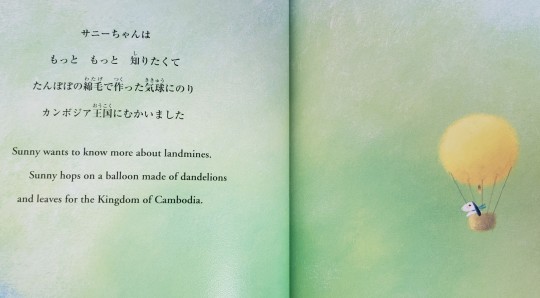 サニーちゃんは
もっと もっと 知りたくて
たんぽぽの綿毛で作った気球にのり
カンボジア王国にむかいました
Sunny wants to know more about landmines.
Sunny hops on a balloon made of dandelions
and leaves for the Kingdom of Cambodia.